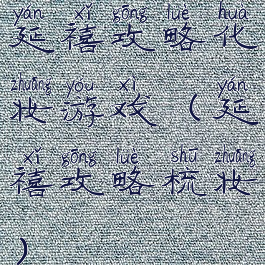 yán xǐ gōng lüè huà
延禧攻略化
zhuāng yóu xì yán
妆游戏（延
xǐ gōng lüè shū zhuāng
禧攻略梳妆
）